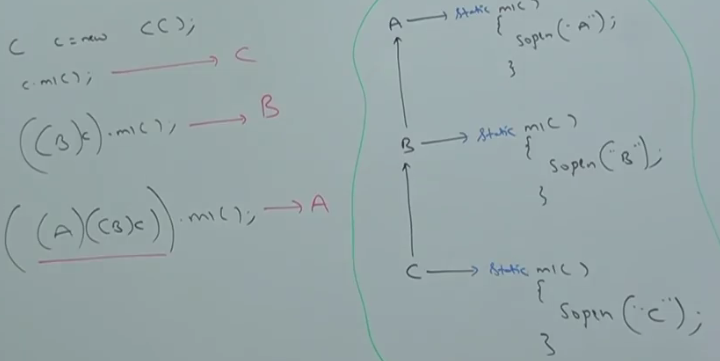 C c=new CC);
c.m1();
((B)c).m1();
C
B
((A)((B)c)).m1();
A
A static m1()
{
sopln("A");
}
B static m1()
{
sopln("B");
}
C static m1()
{
sopln("C");
}